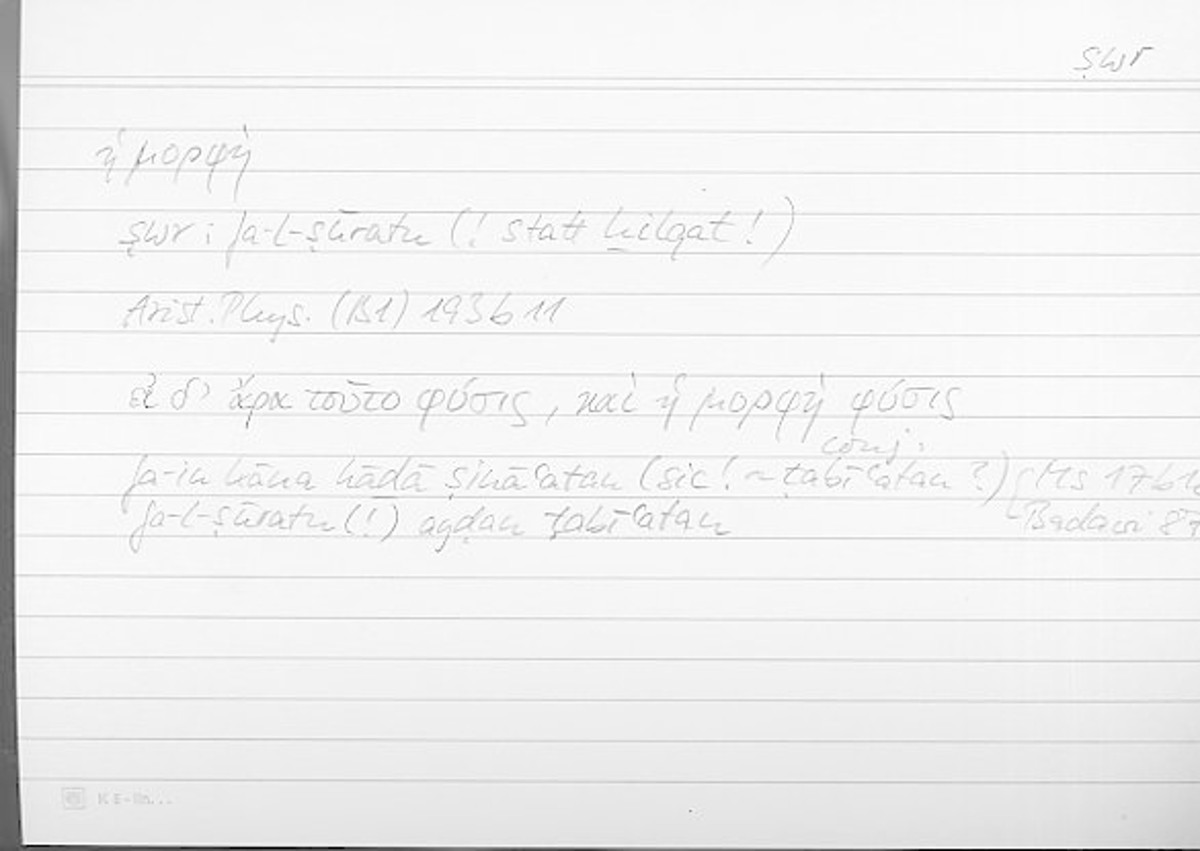 ṣwr
ἡ μορφή
ṣwr: fa-l-ṣūratu (! statt ḫilqat!)
Arist. Phys. (B1) 193b11
εἰ δ' ἄρα τοῦτο φύσις, καὶ ἡ μορφὴ φύσις
conj.:
fa-in kāna hāḏā ṣināʿatan (sic! ~ ṭabīʿatan?) Ms 17b
fa-l-ṣūratu (!) ayḍan ṭabīʿatan Badawi 87